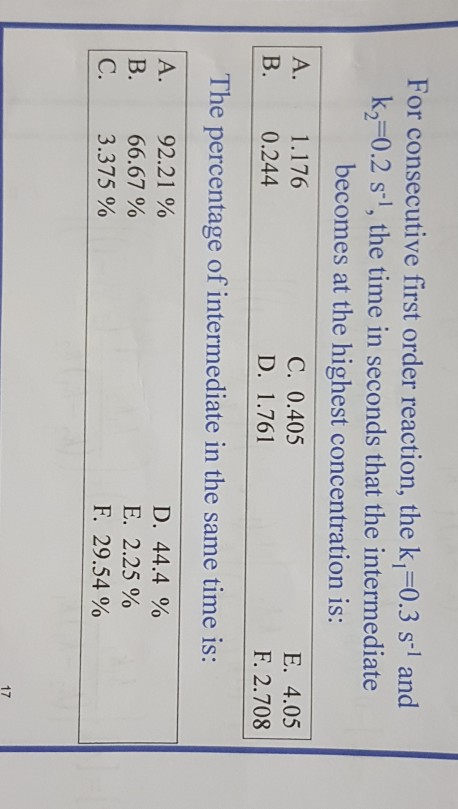 For consecutive first order reaction, the k₁=0.3 s⁻¹ and
k₂=0.2 s⁻¹, the time in seconds that the intermediate
becomes at the highest concentration is:
A. 1.176 C. 0.405 E. 4.05
B. 0.244 D. 1.761 F. 2.708
The percentage of intermediate in the same time is:
A. 92.21 % D. 44.4 %
B. 66.67 % E. 2.25 %
C. 3.375 % F. 29.54 %
17